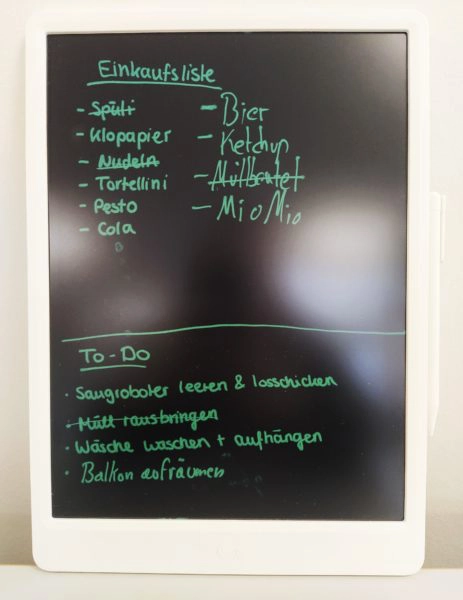 Einkaufsliste
- Spüli
- Klopapier
- Nudeln
- Tortellini
- Pesto
- Cola
- Bier
- Ketchup
- Müllbeutel
- Mio Mio
To-Do
· Saugroboter leeren & losschicken
· Müll rausbringen
· Wäsche waschen + aufhängen
· Balkon aufräumen